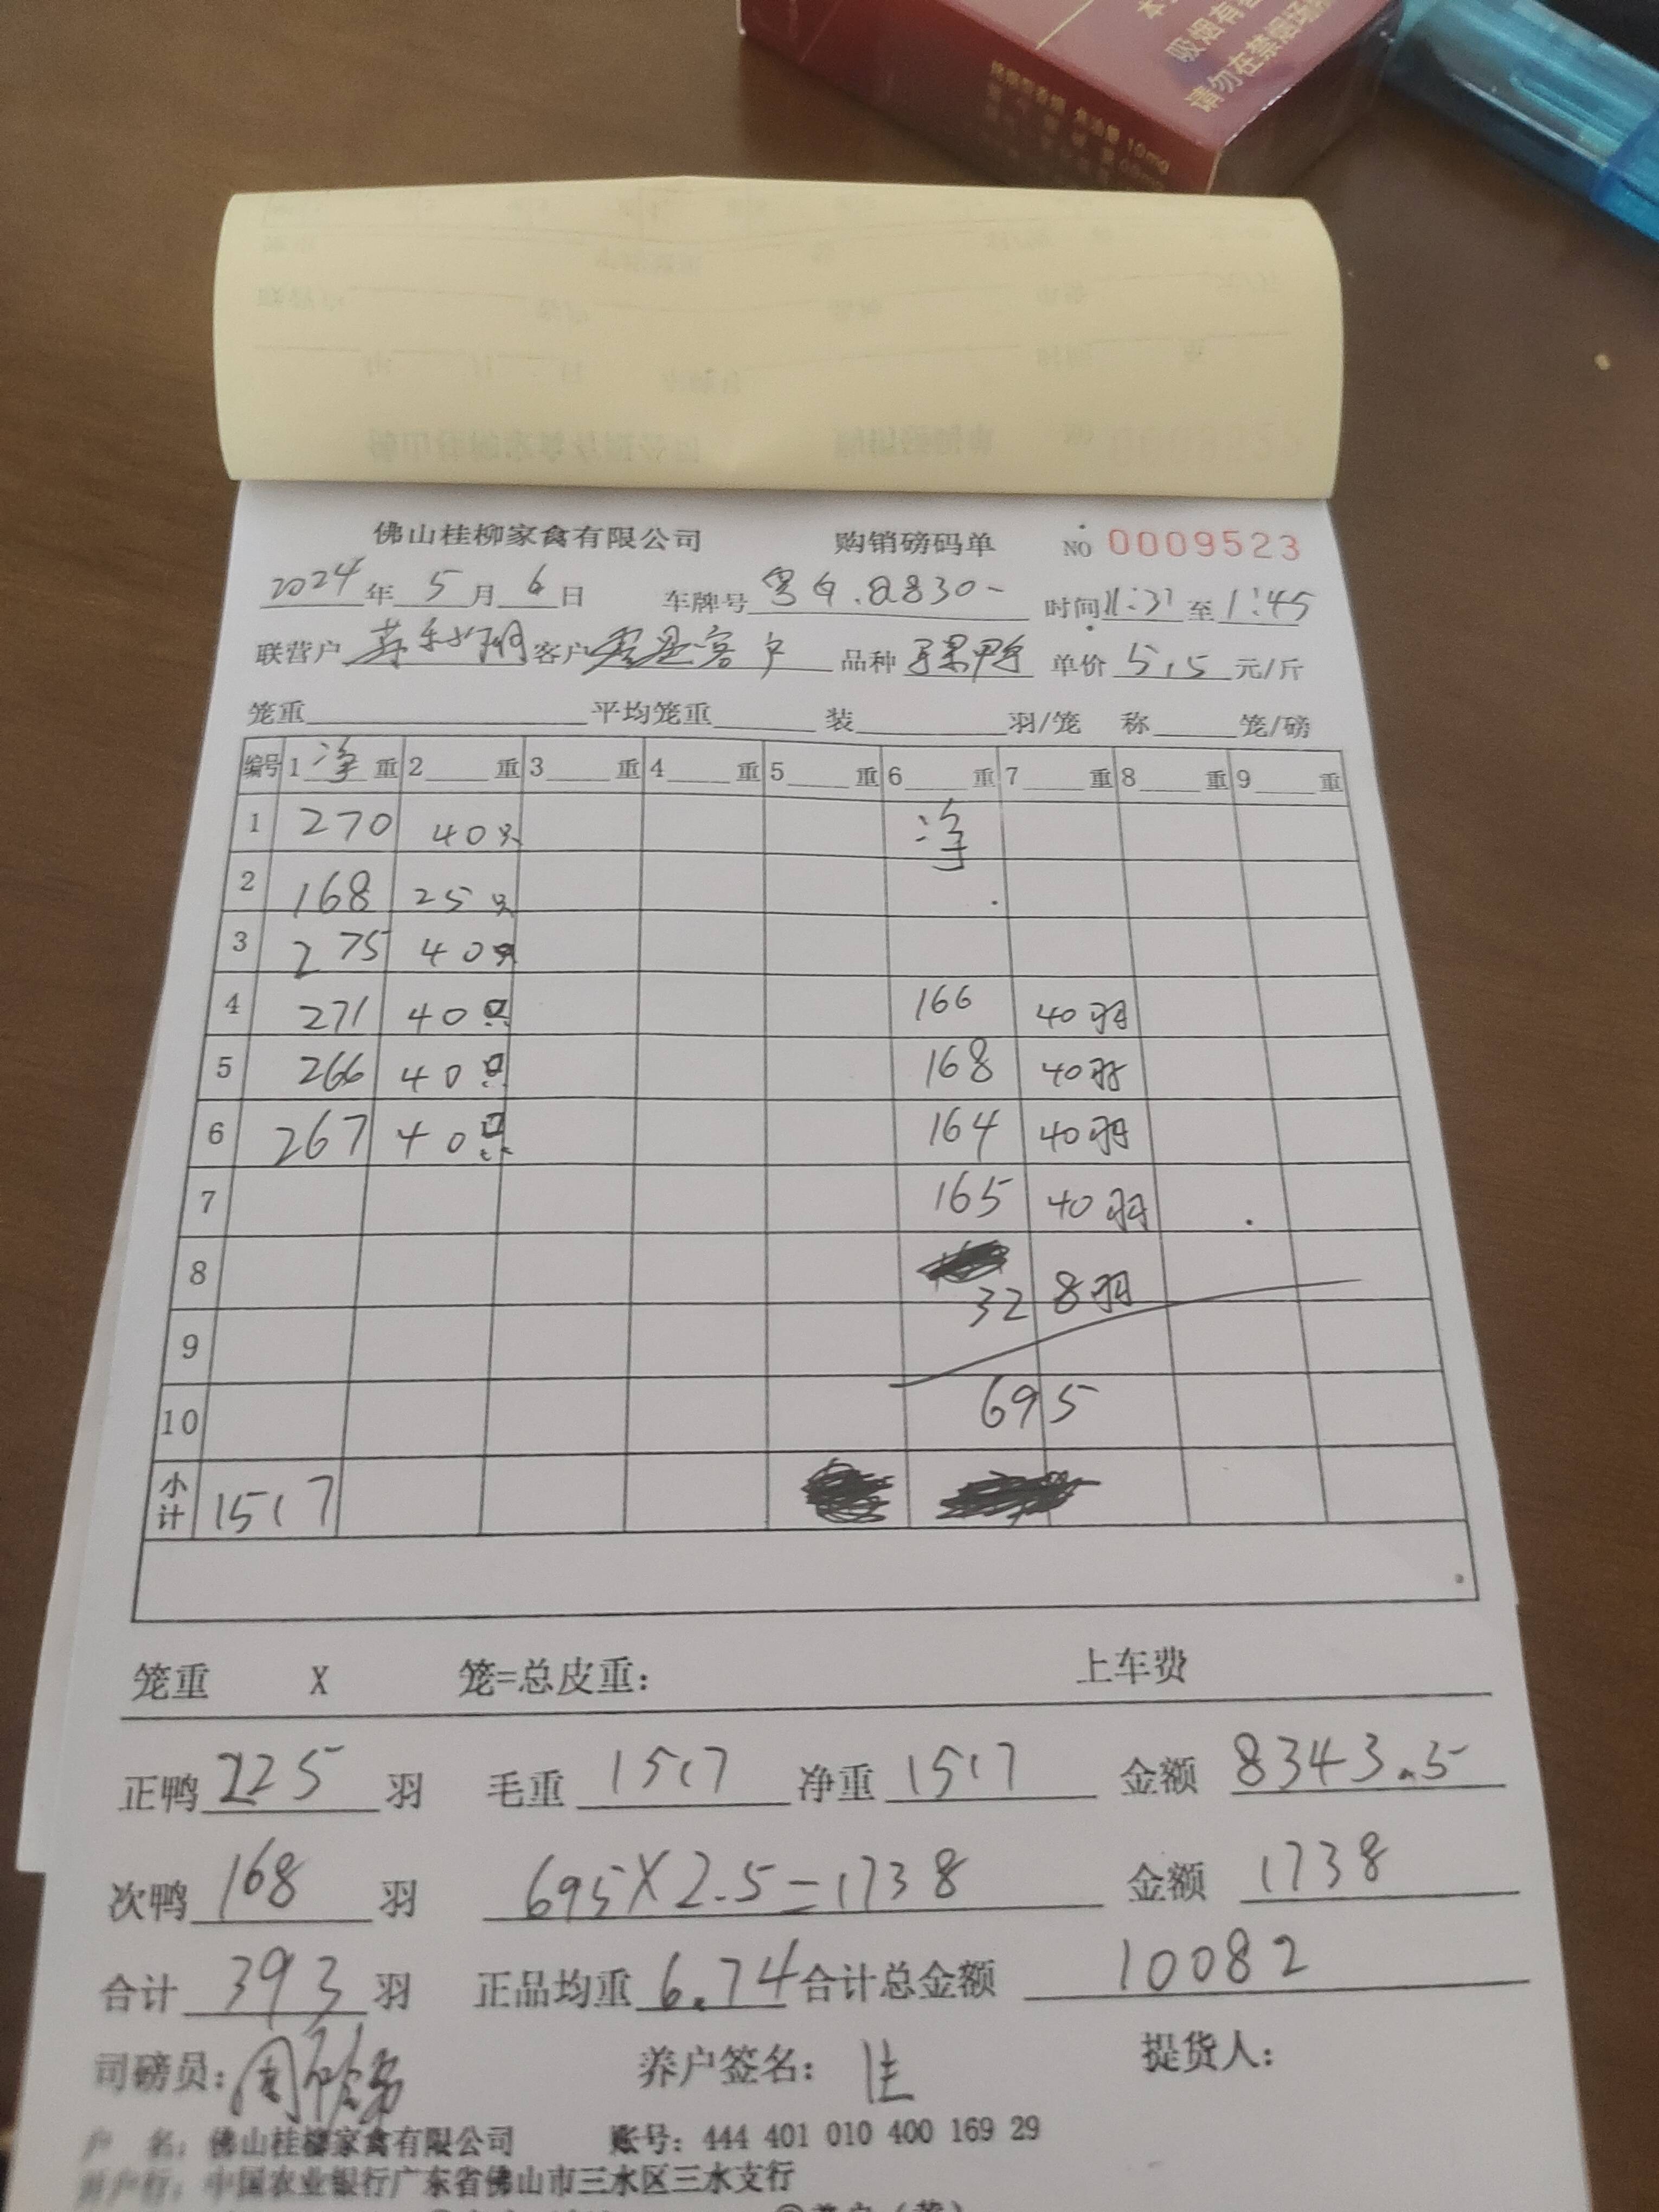 吸烟有害
请勿在禁烟场所
佛山桂柳家禽有限公司 购销磅码单 NO 0009523
2024年5月6日 车牌号 粤 时间11:31至1:45
联营户 客户 零星客户 品种 鸭 单价 5.5 元/斤
笼重 平均笼重 装 羽/笼 称 笼/磅
编号 1 净 重 2 重 3 重 4 重 5 重 6 重 7 重 8 重 9 重
1 270 40只 净
2 168 25只
3 275 40只
4 271 40只 166 40羽
5 266 40只 168 40羽
6 267 40只 164 40羽
7 165 40羽
8 32 8羽
9
10 695
小计 1517
笼重 X 笼=总皮重: 上车费
正鸭 225 羽 毛重 1517 净重 1517 金额 8343.5
次鸭 168 羽 695X2.5=1738 金额 1738
合计 393 羽 正品均重 6.74 合计总金额 10082
司磅员: 养户签名: 佳 提货人:
户 名: 佛山桂柳家禽有限公司 账号: 444 401 010 400 169 29
开户行: 中国农业银行广东省佛山市三水区三水支行